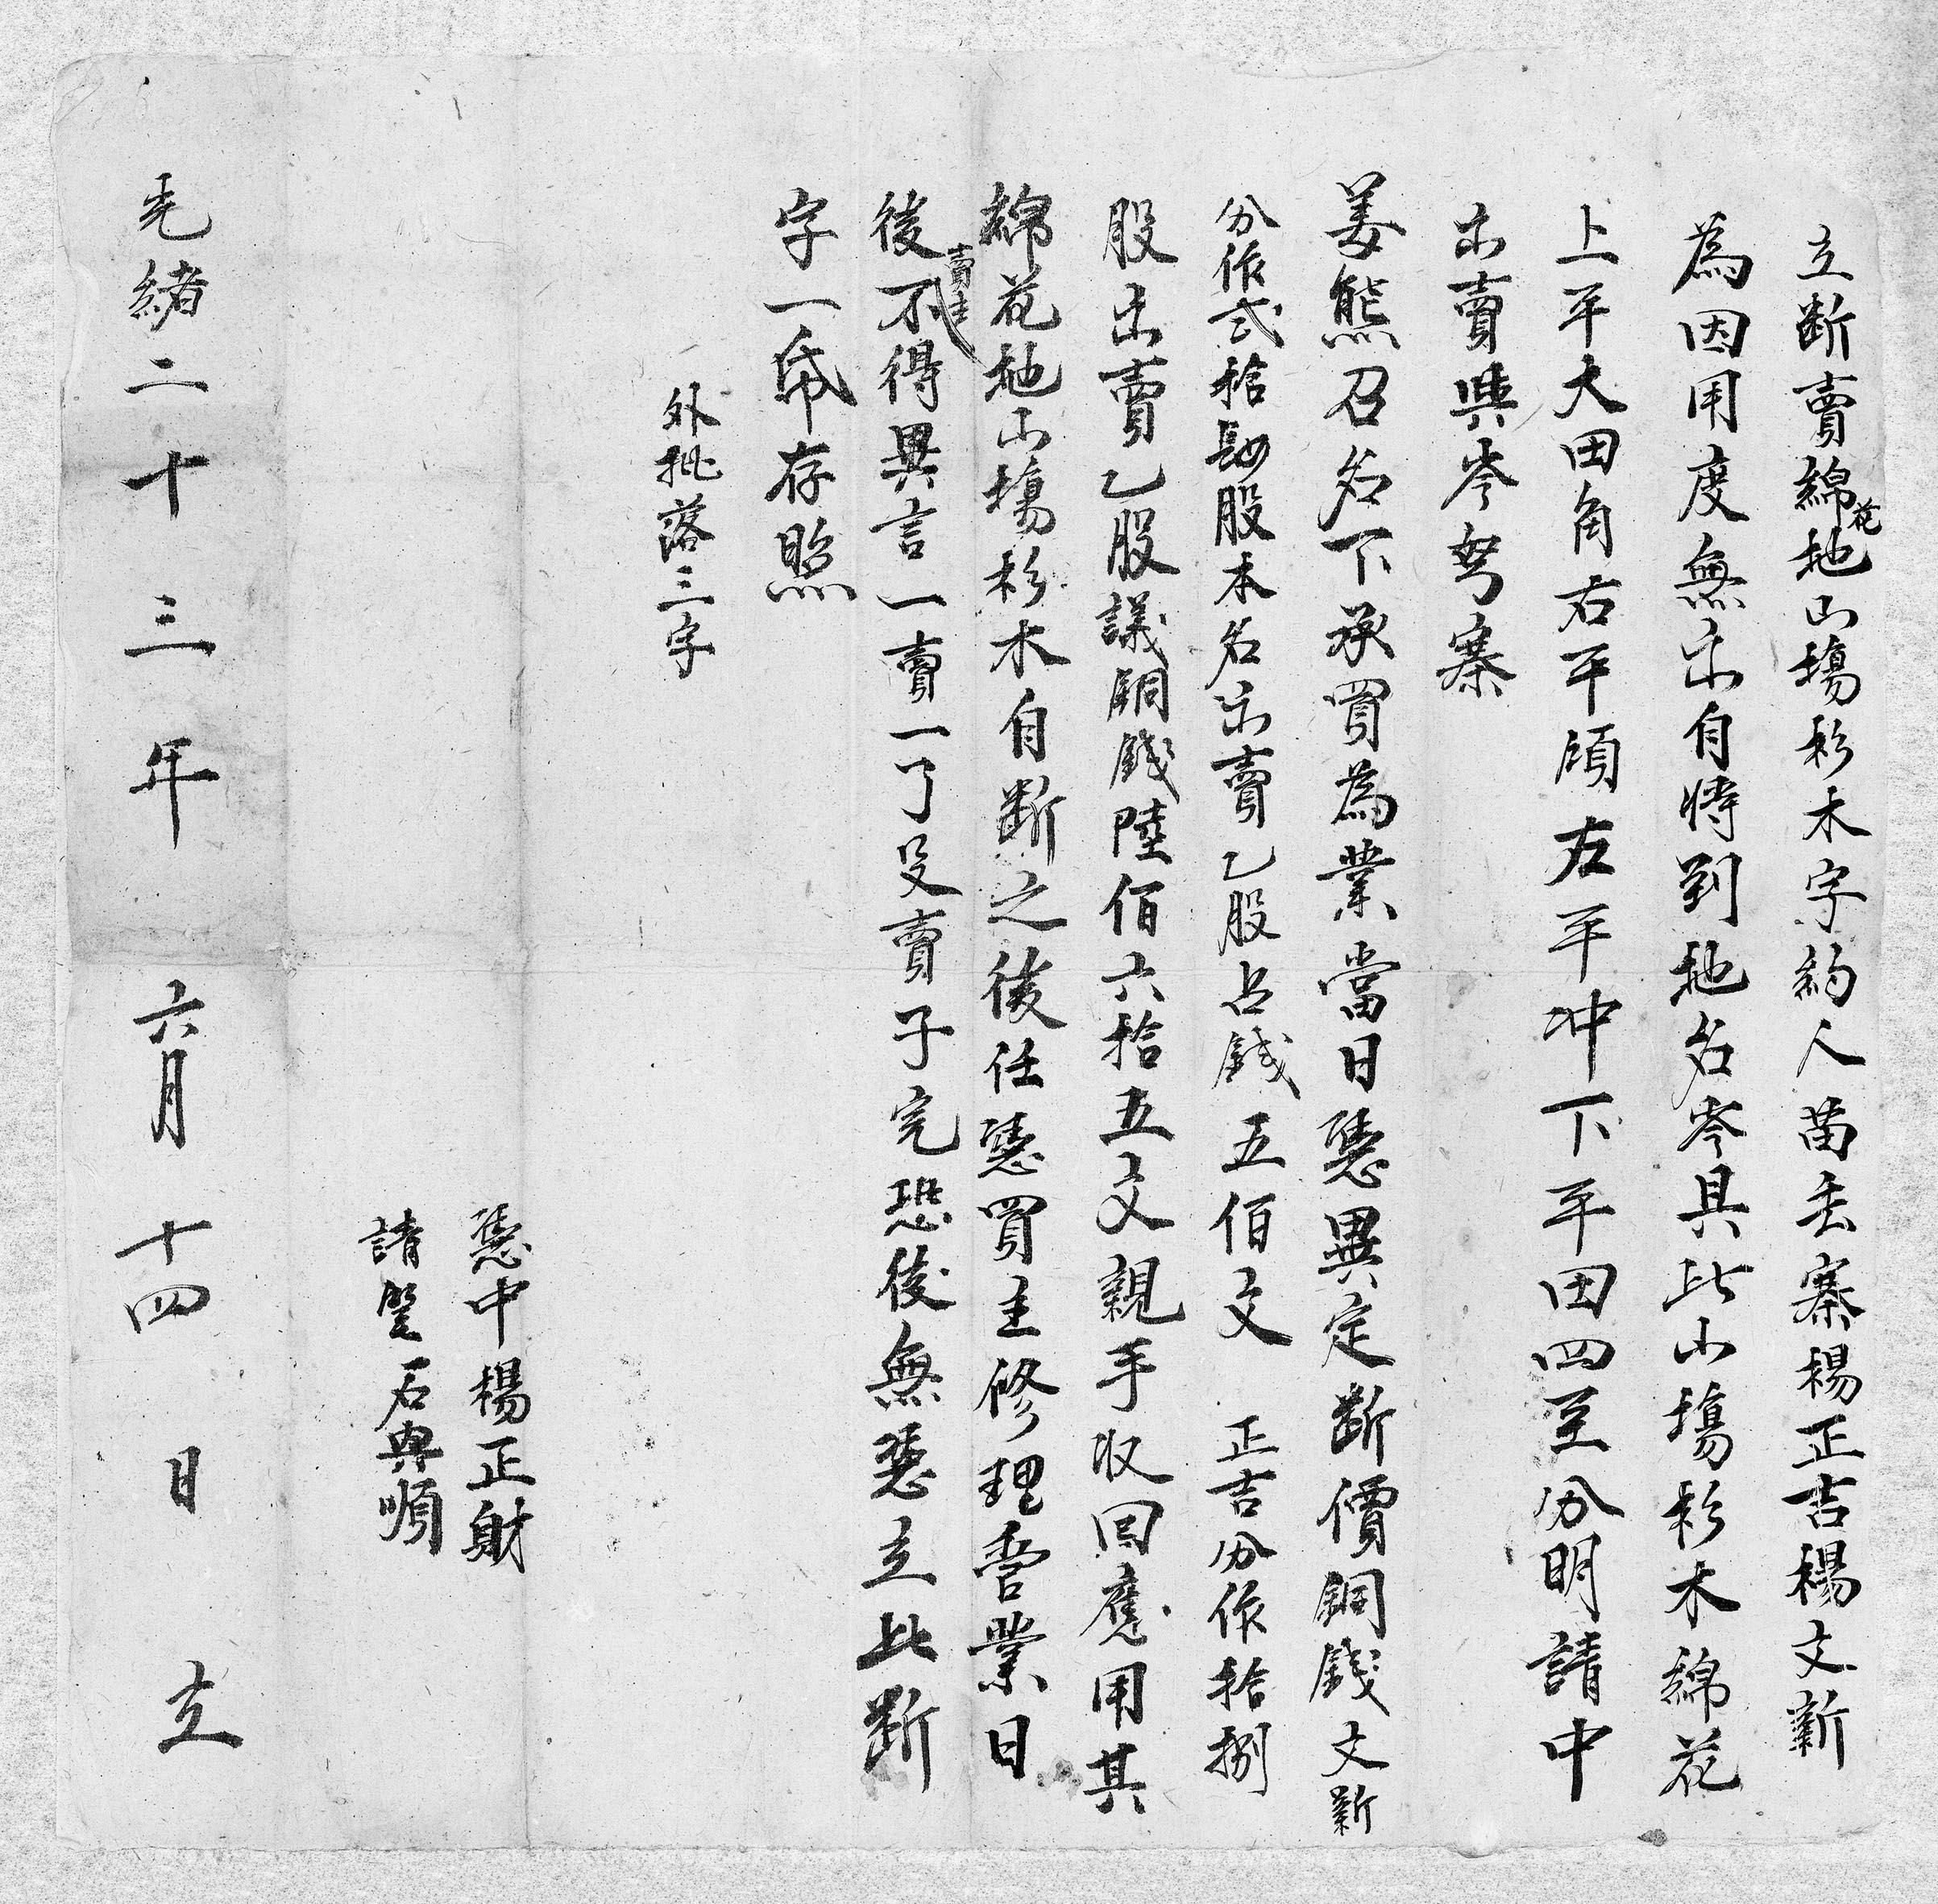 立断賣綿花地山塲杉木字約人苗丢寨楊正吉楊文新
為因用度無出自将到地名岑具此山塲杉木綿花
上平大田角右平頎左平冲下平田四至分明請中
出賣與岑努寨
姜熊召名下承買為業當日憑異定断價銅錢文新
分作贰拾四股本名出賣乙股占錢五佰文 正吉分作拾捌
股出賣乙股議銅錢陸佰六拾五文親手收回應用其
綿花地山塲杉木自断之後任憑買主修理管業日
後賣主不得異言一賣一了父賣子完恐後無憑立此断
字一帋存照
外批落三字
憑中楊正財
請筆石典順
光緒二十三年六月十四日立